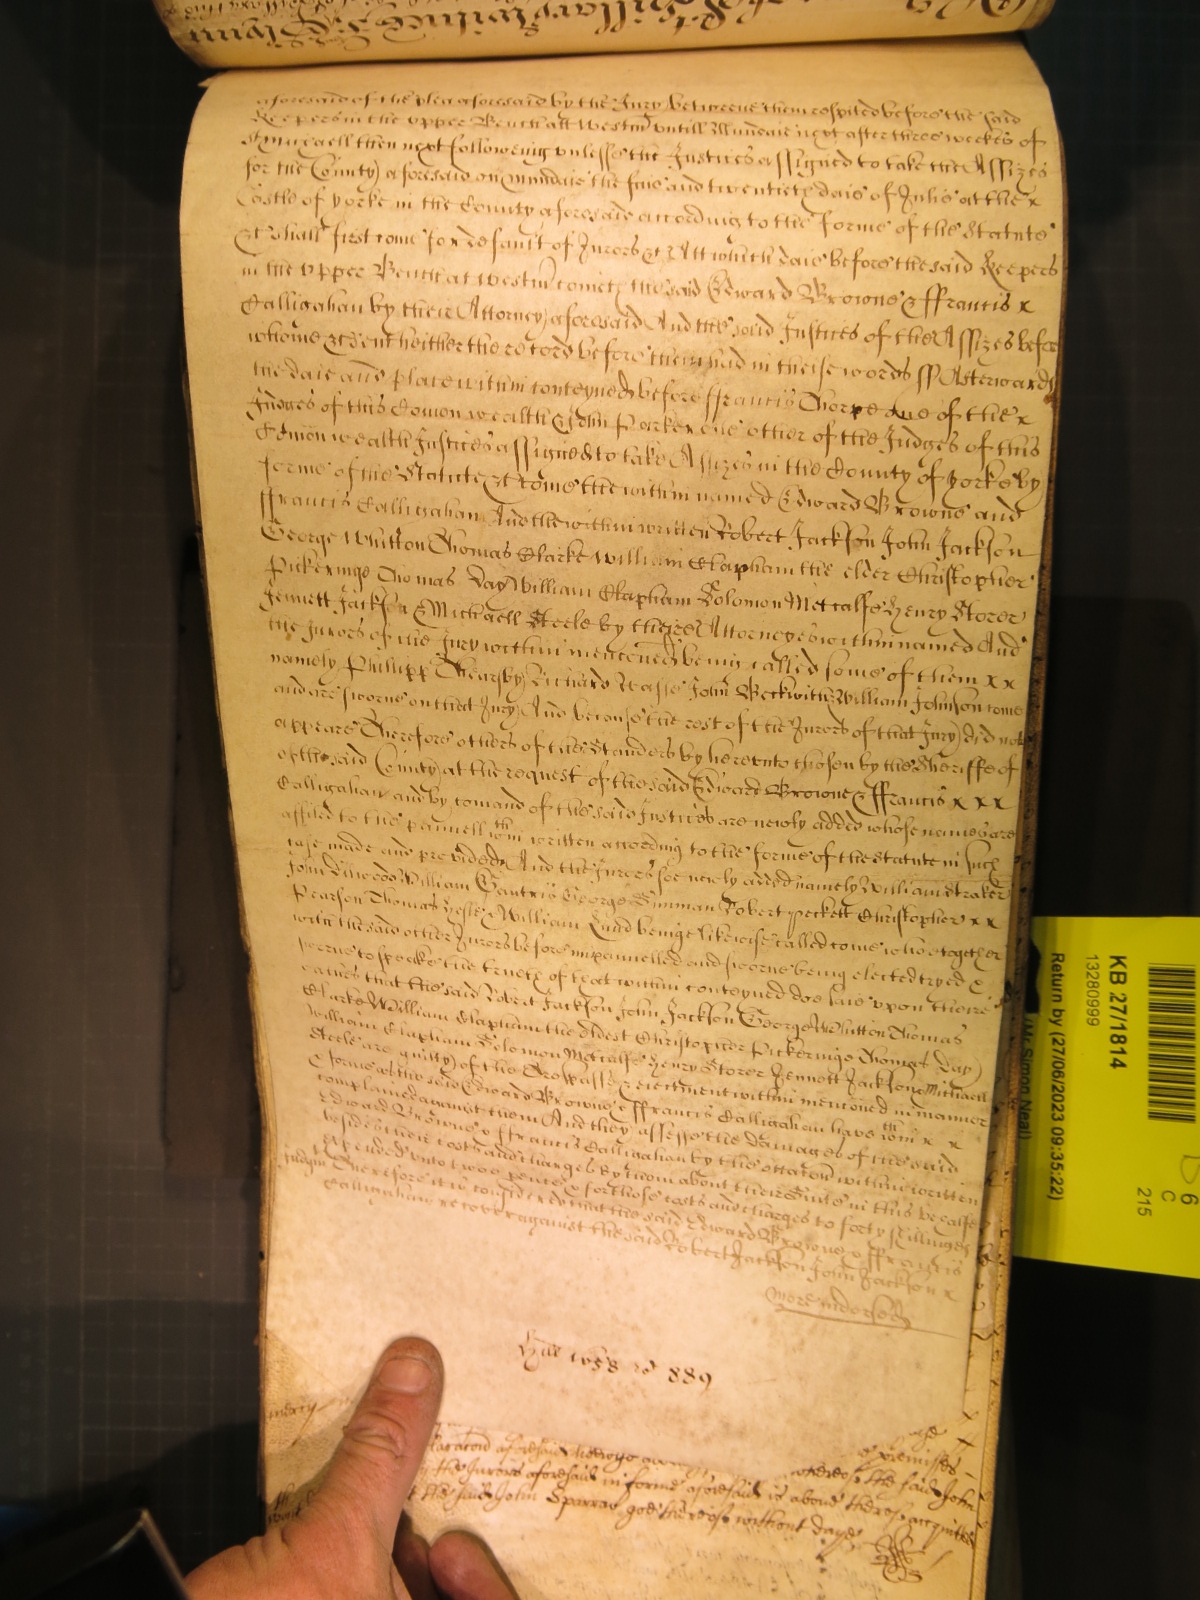 aforesaid of the plea aforesaid by the Jury betweene them respited before the said
Keepers in the upper Bench att Westm untill Mundaie next after three weekes of
St Michaell then next followeing unlesse the Justices assigned to take the Assizes
for the County aforesaid on Mundaie the five and twentieth daie of Julie at the x
Castle of Yorke in the County aforesaid according to the forme of the Statute
&c shall first come for default of Jurors &c Att which daie before the said Keepers
in the upper Bench at Westm cometh the said Edward Browne & ffrancis x
Calligahan by their Attorney aforesaid And the said Justices of the Assizes before
whome &c sent heither there record before them had in theise words ss Afterwards
the daie and place within conteyned before ffrancis Thorpe one of the x
Judges of this Comon wealth & John Parker one other of the Judges of this
Comon wealth Justices assigned to take Assizes in the County of Yorke by
forme of the Statute &c come the within named Edward Browne and
ffrancis Calligahan And the within written Robert Jackson John Jackson
George Whitton Thomas Clarke William Clapham the elder Christopher
Pickeringe Thomas Day William Clapham Solomon Metcalfe Henry Storer
Jennett Jackson & Michaell Steele by their Attorneyes within named And
the Jurors of the Jury within mencened being called some of them x x
namely Phillipp Thearsby Richard John Beckwith William Johnson come
and are sworne on that Jury And because the rest of the Jurors of that Jury did not
appeare Therefore others of the Standers by hereunto chosen by the Sheriffe of
of the said County at the request of the said Edward Browne & ffrancis x x x
Calligahan and by comand of the said Justices are newly added whose names are
affiled to the pannell wthin written according to the forme of the Statute in such
case made and provided And the Jurors soe newly added namely William Straker
John William George Robert Peckett Christopher x x
Pearson Thomas & William Lund beinge likewise called come who together
with the said other Jurors before impannelled and sworne being elected tryed &
sworne to speake the trueth of that within conteyned doe saie upon theire
oathes that the said Robert Jackson John Jackson George Whitton Thomas
Clarke William Clapham the eldest Christopher Pickeringe Thomas Day
William Clapham Solomon Metcalfe Henry Storer Jennett Jackson & Michaell
Steele are guilty of the Trespasse & eiectment within mencioned in manner
& forme as the said Edward Browne & ffrancis Calligahan have wthin x x
complained against them And they assesse the damages of the said
Edward Browne & ffrancis Calligahan by the occacon within written
besides their costs and charges by them about their Suite in this behalfe
expended unto twoe pence & for those costs and charges to forty shillinges
Judgm Therefore it is considered that the said Edward Browne & ffrancis
Calligahan recover against the said Robert Jackson John Jackson x
more indorsed
Hill 1658 ro 889
mercy
occacon aforesaid
premisses
whereof the said John
by the Jurors aforesaid in forme aforesaid is above thereof acquitted
the said John Sparrow goe thereof without daye &c
KB 27/1814
13280999
Return by (27/06/2023 09:35:22)
(Mr Simon Neal)
D 6
C
215